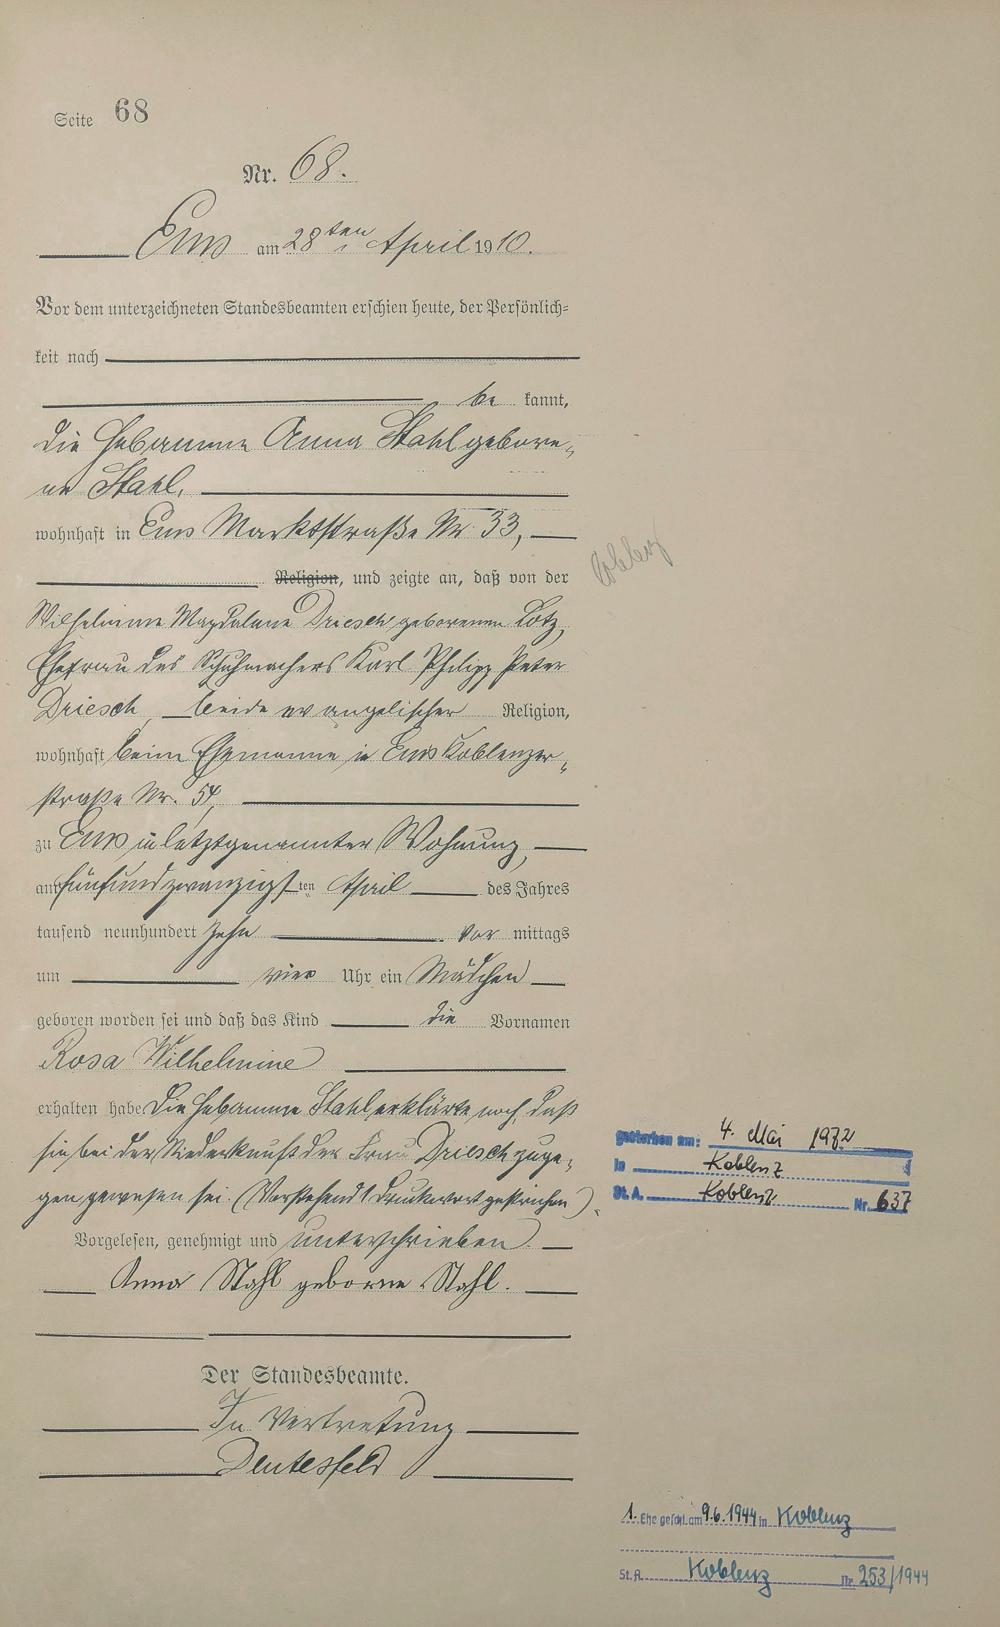 Seite 68
Nr. 68.
Ems am 28ten April 1910.
Vor dem unterzeichneten Standesbeamten erschien heute, der Persönlich=
keit nach
be kannt,
die Hebamme Anna Stahl gebore„
ne Stahl,
wohnhaft in Ems Marktstraße Nr. 33,
Religion, und zeigte an, daß von der
Wilhelmine Magdalene Driesch geborenen Lotz,
Ehefrau des Schuhmachers Karl Philipp Peter
Driesch, beide evangelischer Religion,
wohnhaft beim Ehemanne in Ems Koblenzer„
straße Nr. 54,
zu Ems in letztgenannter Wohnung,
am fünfundzwanzigsten April des Jahres
tausend neunhundert zehn vor mittags
um vier Uhr ein Mädchen
geboren worden sei und daß das Kind die Vornamen
Rosa Wilhelmine
erhalten habe. Die Hebamme Stahl erklärte noch, daß
sie bei der Niederkunft der Frau Driesch zuge„
gen gewesen sei. (Vorstehend 1 Druckwort gestrichen).
Vorgelesen, genehmigt und unterschrieben.
Anna Stahl geborne Stahl.
Der Standesbeamte.
In Vertretung
Deutesfeld
Koblenz
gestorben am: 4. Mai 1972
in Koblenz
St. A. Koblenz Nr. 637
1. Ehe geschl. am 9.6.1944 in Koblenz
St. A. Koblenz Nr. 253/1944